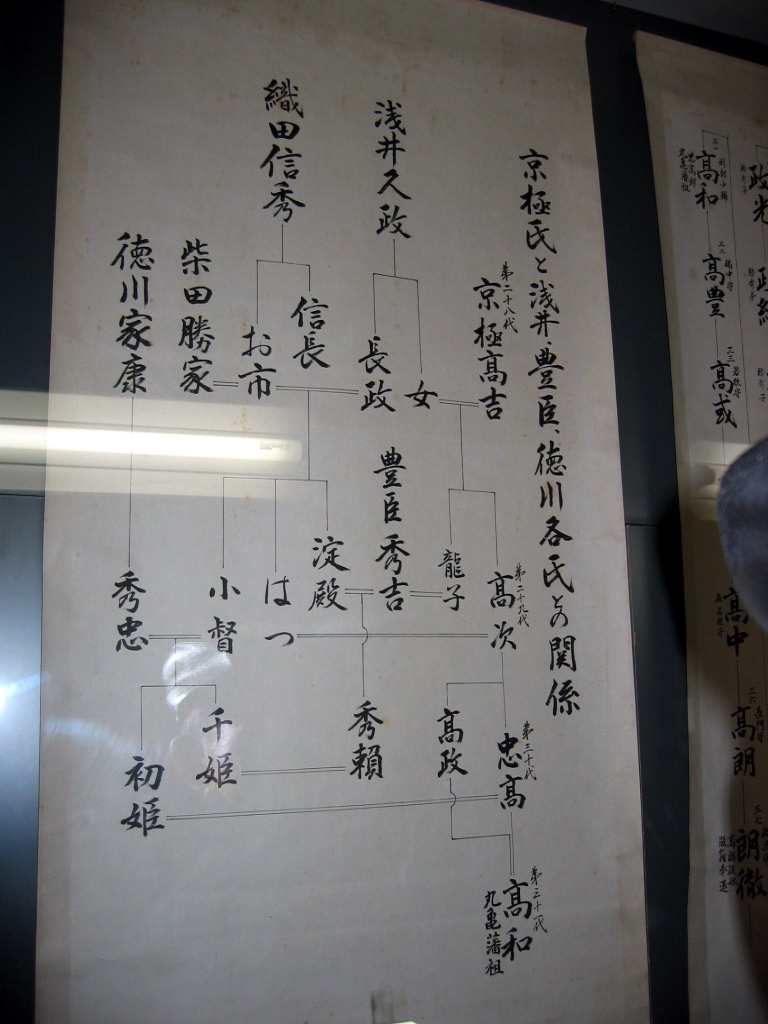 京極氏と浅井、豊臣、徳川各氏との関係
第二十八代
京極高吉
浅井久政
女
長政
織田信秀
信長
お市
柴田勝家
徳川家康
第二十九代
高次
龍子
豊臣秀吉
淀殿
はつ
小督
秀忠
第三十代
忠高
高政
秀頼
千姫
初姫
第三十一代
高和
丸亀藩祖
政光
高和
丸亀藩祖
高豊
高或
高中
高朗
朗徹